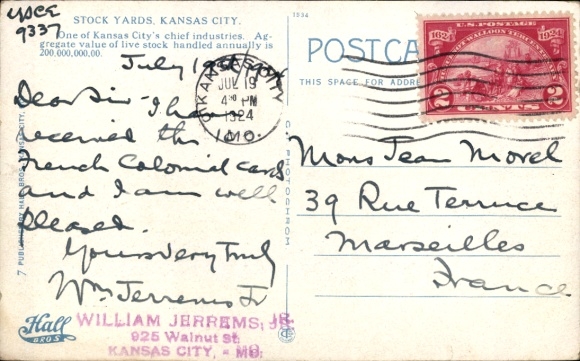 YSCE
9337
STOCK YARDS, KANSAS CITY.
One of Kansas City's chief industries. Ag-
gregate value of live stock handled annually is
200,000,000.00.
July 19
Dear Sir - I have
received the
French Colonial cards
and I am well
pleased.
Yours Very Truly
Wm Jerrems Jr
WILLIAM JERREMS, JR.
925 Walnut St.
KANSAS CITY, - MO.
Hall
BROS
KANSAS CITY
JUL 19
4 30 PM
1924
MO.
C. T. PHOTOCHROM
POSTCA
THIS SPACE FOR ADDRES
U.S. POSTAGE
1624 1924
HUGUENOT WALLOON TERCENTENARY
2 CENTS 2
Mons Jean Morel
39 Rue Terruce
Marseilles
France